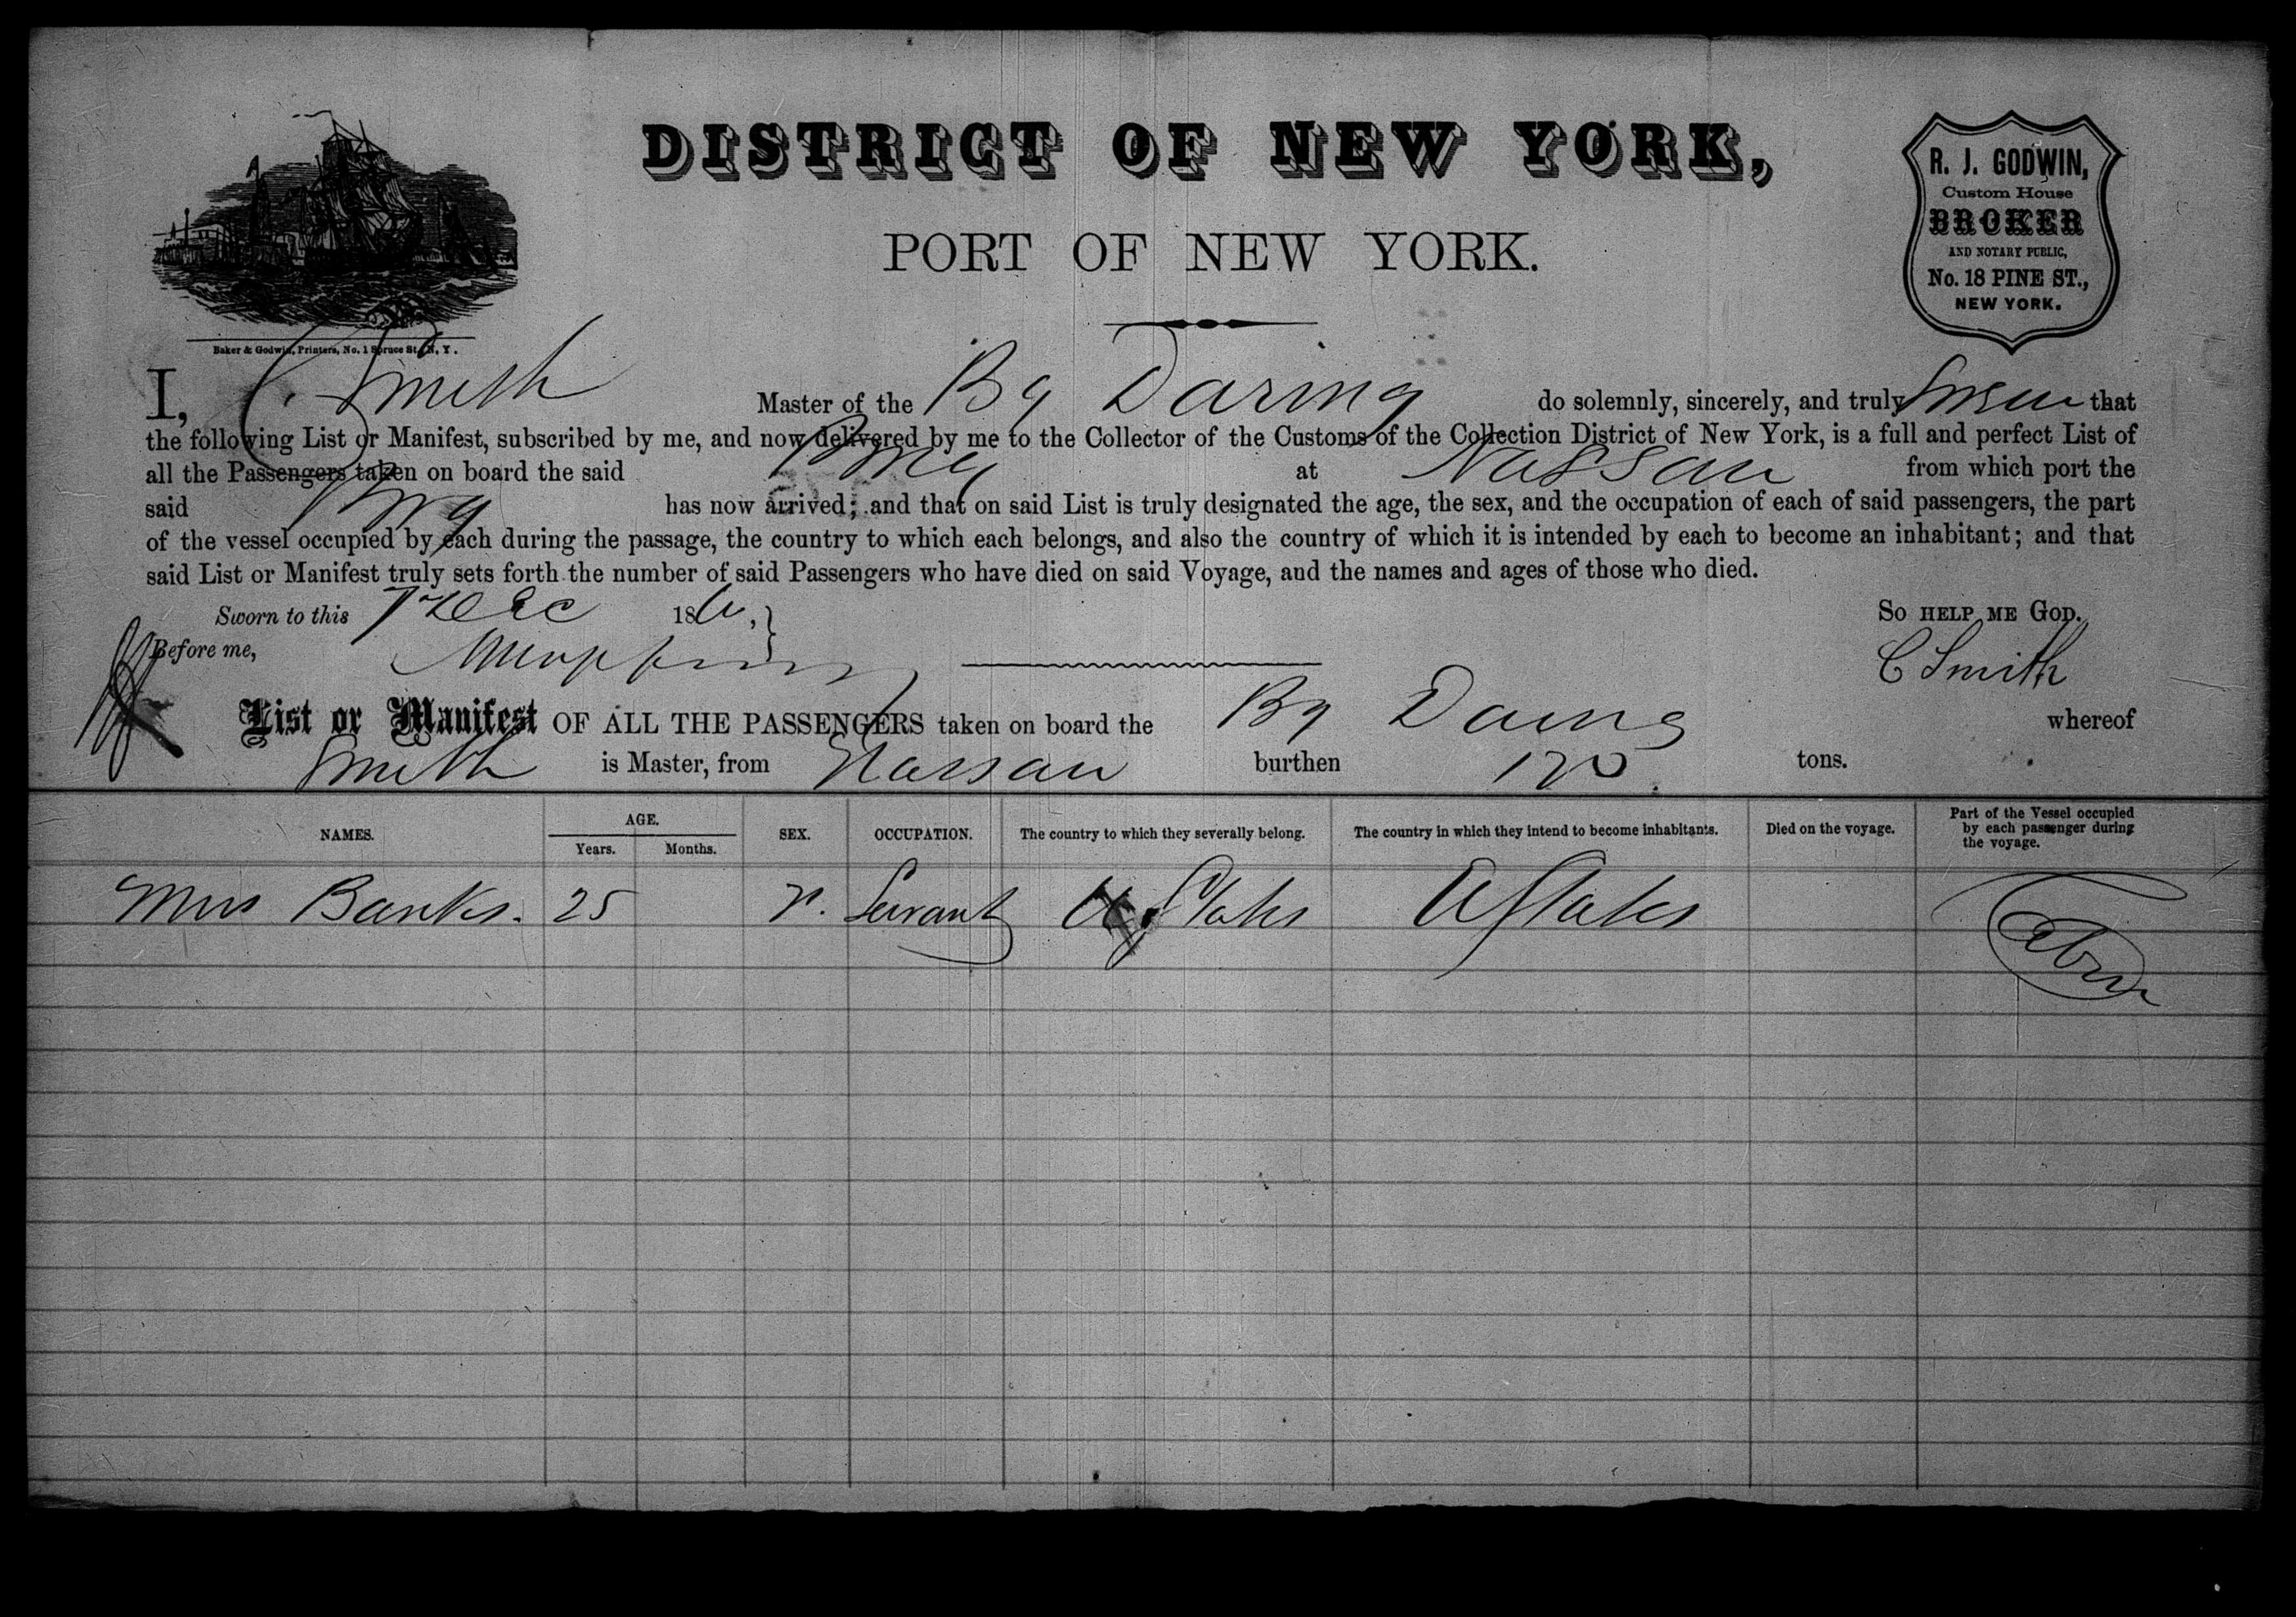 DISTRICT OF NEW YORK,
PORT OF NEW YORK.
R. J. GODWIN,
Custom House
BROKER
AND NOTARY PUBLIC,
No. 18 PINE ST.,
NEW YORK.
Baker & Godwin, Printers, No. 1 Spruce St., N. Y.
I, C. Smith Master of the Bg Daring do solemnly, sincerely, and truly swear that
the following List or Manifest, subscribed by me, and now delivered by me to the Collector of the Customs of the Collection District of New York, is a full and perfect List of
all the Passengers taken on board the said Brig at Nassau from which port the
said Brig has now arrived; and that on said List is truly designated the age, the sex, and the occupation of each of said passengers, the part
of the vessel occupied by each during the passage, the country to which each belongs, and also the country of which it is intended by each to become an inhabitant; and that
said List or Manifest truly sets forth the number of said Passengers who have died on said Voyage, and the names and ages of those who died.
Sworn to this Dec 186 So HELP ME GOD.
Before me, C Smith
List or Manifest OF ALL THE PASSENGERS taken on board the Bg Daring whereof
Smith is Master, from Nassau burthen tons.
NAMES. AGE. Years. Months. SEX. OCCUPATION. The country to which they severally belong. The country in which they intend to become inhabitants. Died on the voyage. Part of the Vessel occupied by each passenger during the voyage.
Banks. 25 Servant U States U States Cabin